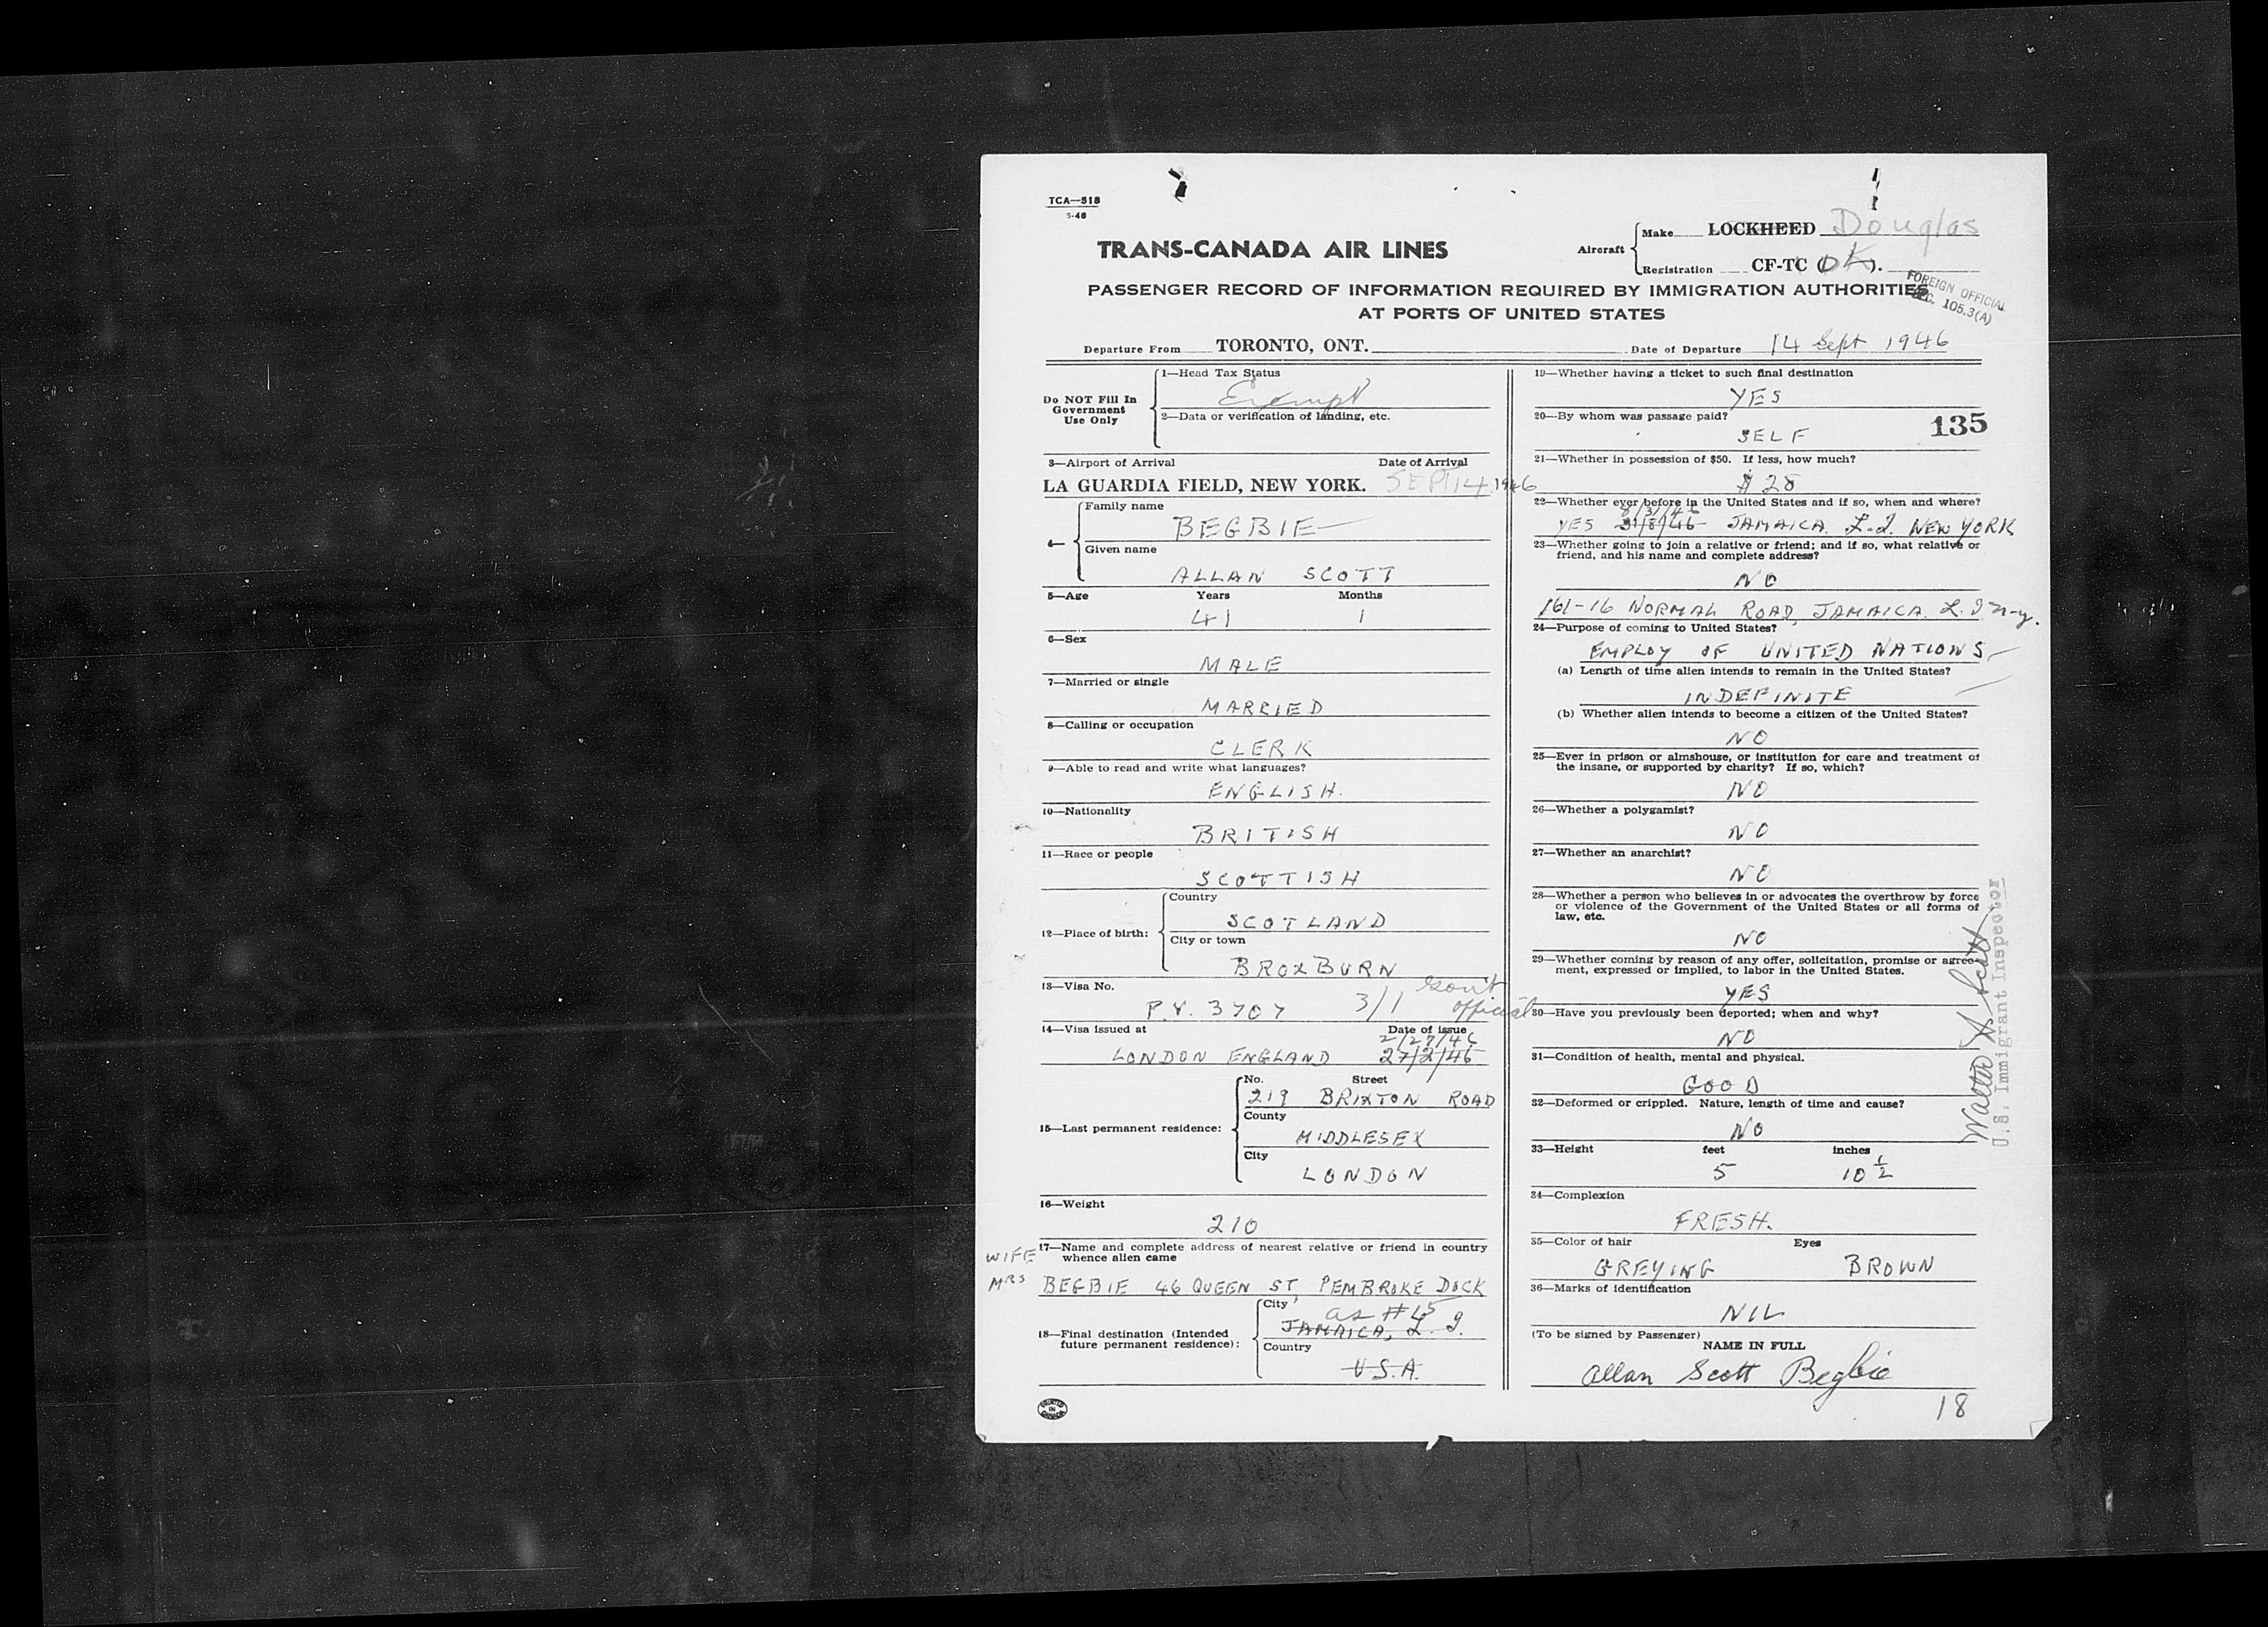 TCA—518
5-46
TRANS-CANADA AIR LINES
Aircraft
Make LOCKHEED Douglas
Registration CF-TC (DK).
FOREIGN OFFICIAL
SEC. 105.3(A)
PASSENGER RECORD OF INFORMATION REQUIRED BY IMMIGRATION AUTHORITIES
AT PORTS OF UNITED STATES
Departure From TORONTO, ONT. Date of Departure 14 Sept 1946
Do NOT Fill In
Government
Use Only
1—Head Tax Status
Exempt
2—Data or verification of landing, etc.
3—Airport of Arrival Date of Arrival
LA GUARDIA FIELD, NEW YORK. SEPT 14 1946
4—
Family name
BEGBIE
Given name
ALLAN SCOTT
5—Age Years Months
41 1
6—Sex
MALE
7—Married or single
MARRIED
8—Calling or occupation
CLERK
9—Able to read and write what languages?
ENGLISH.
10—Nationality
BRITISH
11—Race or people
SCOTTISH
12—Place of birth:
Country
SCOTLAND
City or town
BROXBURN
13—Visa No. Gov't
P.V. 3707 3/1 official
14—Visa issued at Date of issue
2/27/46
LONDON ENGLAND 27/2/46
15—Last permanent residence:
No. Street
219 BRIXTON ROAD
County
MIDDLESEX
City
LONDON
16—Weight
210
17—Name and complete address of nearest relative or friend in country
whence alien came
WIFE
MRS BEGBIE 46 QUEEN ST, PEMBROKE DOCK
18—Final destination (Intended
future permanent residence):
City
as #15
JAMAICA, L.I.
Country
U.S.A.
19—Whether having a ticket to such final destination
YES
20—By whom was passage paid?
SELF
135
21—Whether in possession of $50. If less, how much?
$ 28
22—Whether ever before in the United States and if so, when and where?
8/31/46
YES 31/8/46 JAMAICA. L.I. NEW YORK
23—Whether going to join a relative or friend; and if so, what relative or
friend, and his name and complete address?
NO
161-16 NORMAL ROAD, JAMAICA. L.I n-y.
24—Purpose of coming to United States?
EMPLOY OF UNITED NATIONS
(a) Length of time alien intends to remain in the United States?
INDEFINITE
(b) Whether alien intends to become a citizen of the United States?
NO
25—Ever in prison or almshouse, or institution for care and treatment of
the insane, or supported by charity? If so, which?
NO
26—Whether a polygamist?
NO
27—Whether an anarchist?
NO
28—Whether a person who believes in or advocates the overthrow by force
or violence of the Government of the United States or all forms of
law, etc.
NO
29—Whether coming by reason of any offer, solicitation, promise or agree-
ment, expressed or implied, to labor in the United States.
YES
30—Have you previously been deported; when and why?
NO
31—Condition of health, mental and physical.
GOOD
32—Deformed or crippled. Nature, length of time and cause?
NO
33—Height feet inches
5 10 ½
34—Complexion
FRESH.
35—Color of hair Eyes
GREYING BROWN
36—Marks of identification
NIL
(To be signed by Passenger)
NAME IN FULL
Allan Scott Begbie
18
Walter Scott
U.S. Immigrant Inspector
PRINTED
IN
CANADA